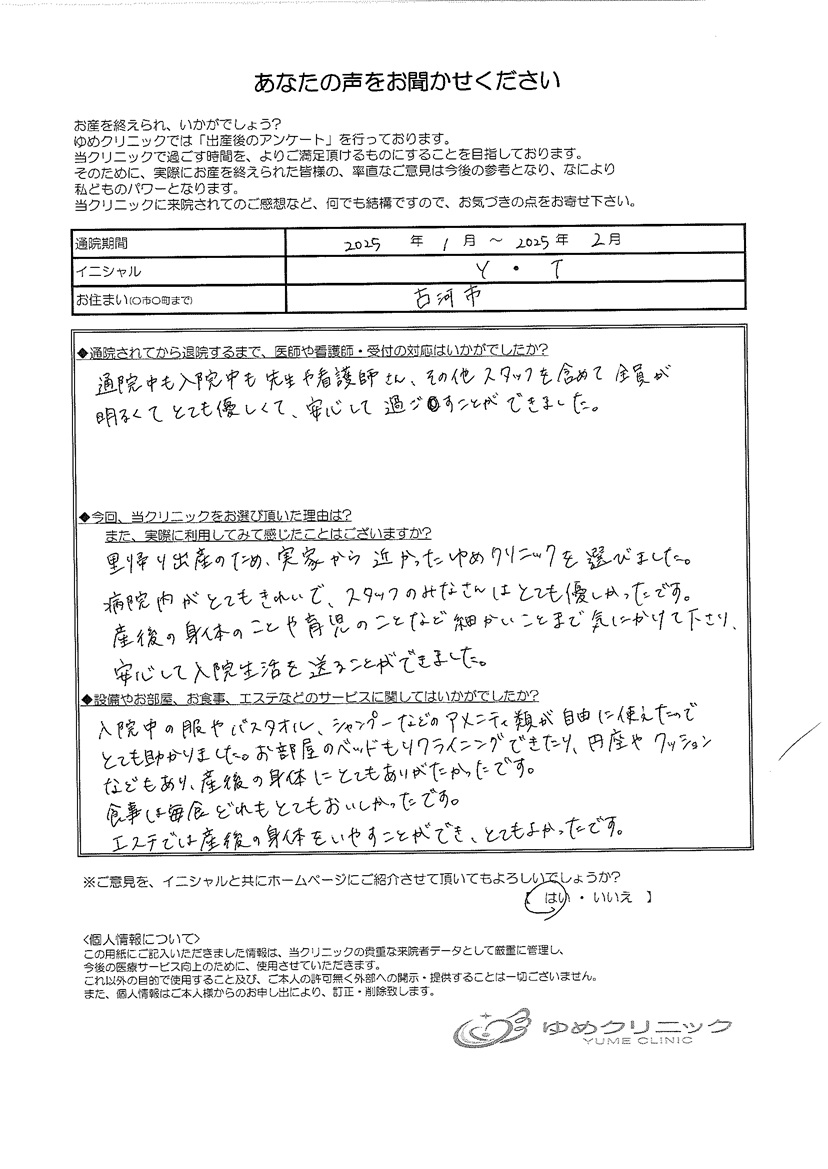 あなたの声をお聞かせください
お産を終えられ、いかがでしょう?
ゆめクリニックでは「出産後のアンケート」を行っております。
当クリニックで過ごす時間を、よりご満足頂けるものにすることを目指しております。
そのために、実際にお産を終えられた皆様の、率直なご意見は今後の参考となり、なにより
私どものパワーとなります。
当クリニックに来院されてのご感想など、何でも結構ですので、お気づきの点をお寄せ下さい。
通院期間 2025 年 1 月 ~ 2025 年 2 月
イニシャル Y ・ T
お住まい(○市○町まで) 古河市
◆通院されてから退院するまで、医師や看護師・受付の対応はいかがでしたか?
通院中も入院中も先生や看護師さん、その他スタッフを含めて全員が
明るくてとても優しくて、安心して過ごすことができました。
◆今回、当クリニックをお選び頂いた理由は?
また、実際に利用してみて感じたことはございますか?
里帰り出産のため、実家から近かったゆめクリニックを選びました。
病院内がとてもきれいで、スタッフのみなさんはとても優しかったです。
産後の身体のことや育児のことなど細かいことまで気にかけて下さり、
安心して入院生活を送ることができました。
◆設備やお部屋、お食事、エステなどのサービスに関してはいかがでしたか?
入院中の服やバスタオル、シャンプーなどのアメニティ類が自由に使えたので
とても助かりました。お部屋のベッドもリクライニングできたり、円座やクッション
などもあり、産後の身体にとてもありがたかったです。
食事は毎食どれもとてもおいしかったです。
エステでは産後の身体をいやすことができ、とてもよかったです。
※ご意見を、イニシャルと共にホームページにご紹介させて頂いてもよろしいでしょうか?
【 はい ・ いいえ 】
<個人情報について>
この用紙にご記入いただきました情報は、当クリニックの貴重な来院者データとして厳重に管理し、
今後の医療サービス向上のために、使用させていただきます。
これ以外の目的で使用すること及び、ご本人の許可無く外部への開示・提供することは一切ございません。
また、個人情報はご本人様からのお申し出により、訂正・削除致します。
ゆめクリニック
YUME CLINIC